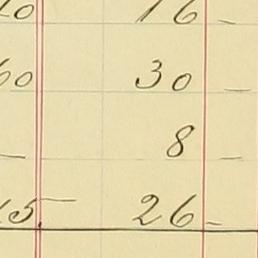 20 16 –
60 30 –
– 8 –
15 – 26 –